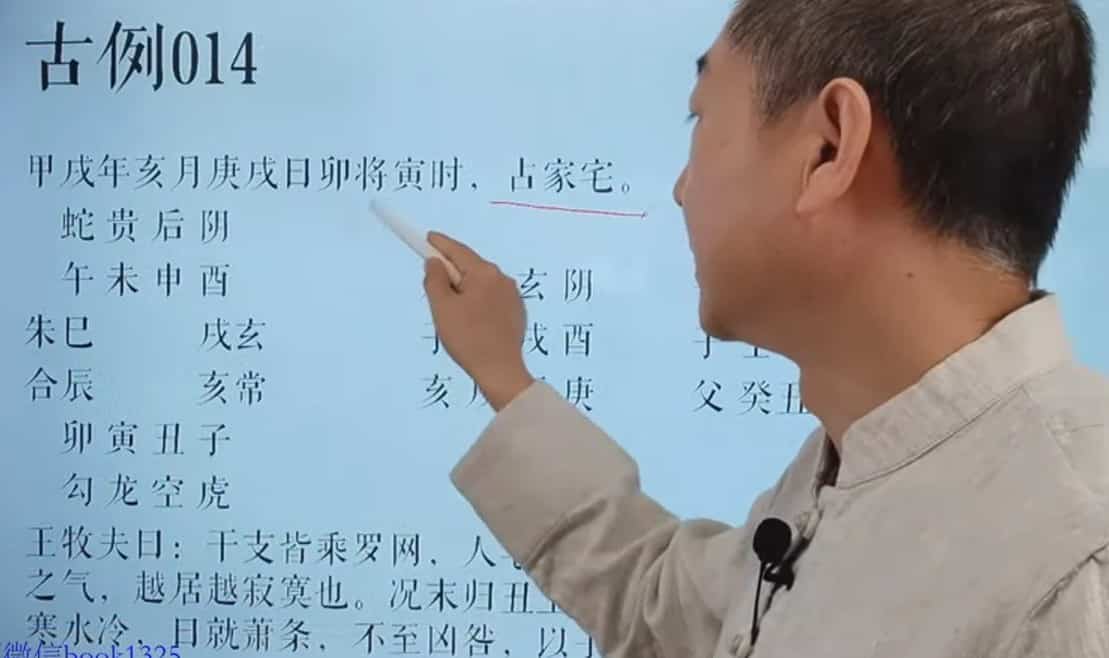 古例014
甲戌年亥月庚戌日卯将寅时，占家宅。
蛇贵后阴
午未申酉 玄阴
朱巳 戌玄 子 戌酉
合辰 亥常 亥 庚 父癸丑
卯寅丑子
勾龙空虎
王牧夫曰：干支皆乘罗网，人
之气，越居越寂寞也。况末归丑
寒水冷，日就萧条，不至凶咎，以
微信book1325